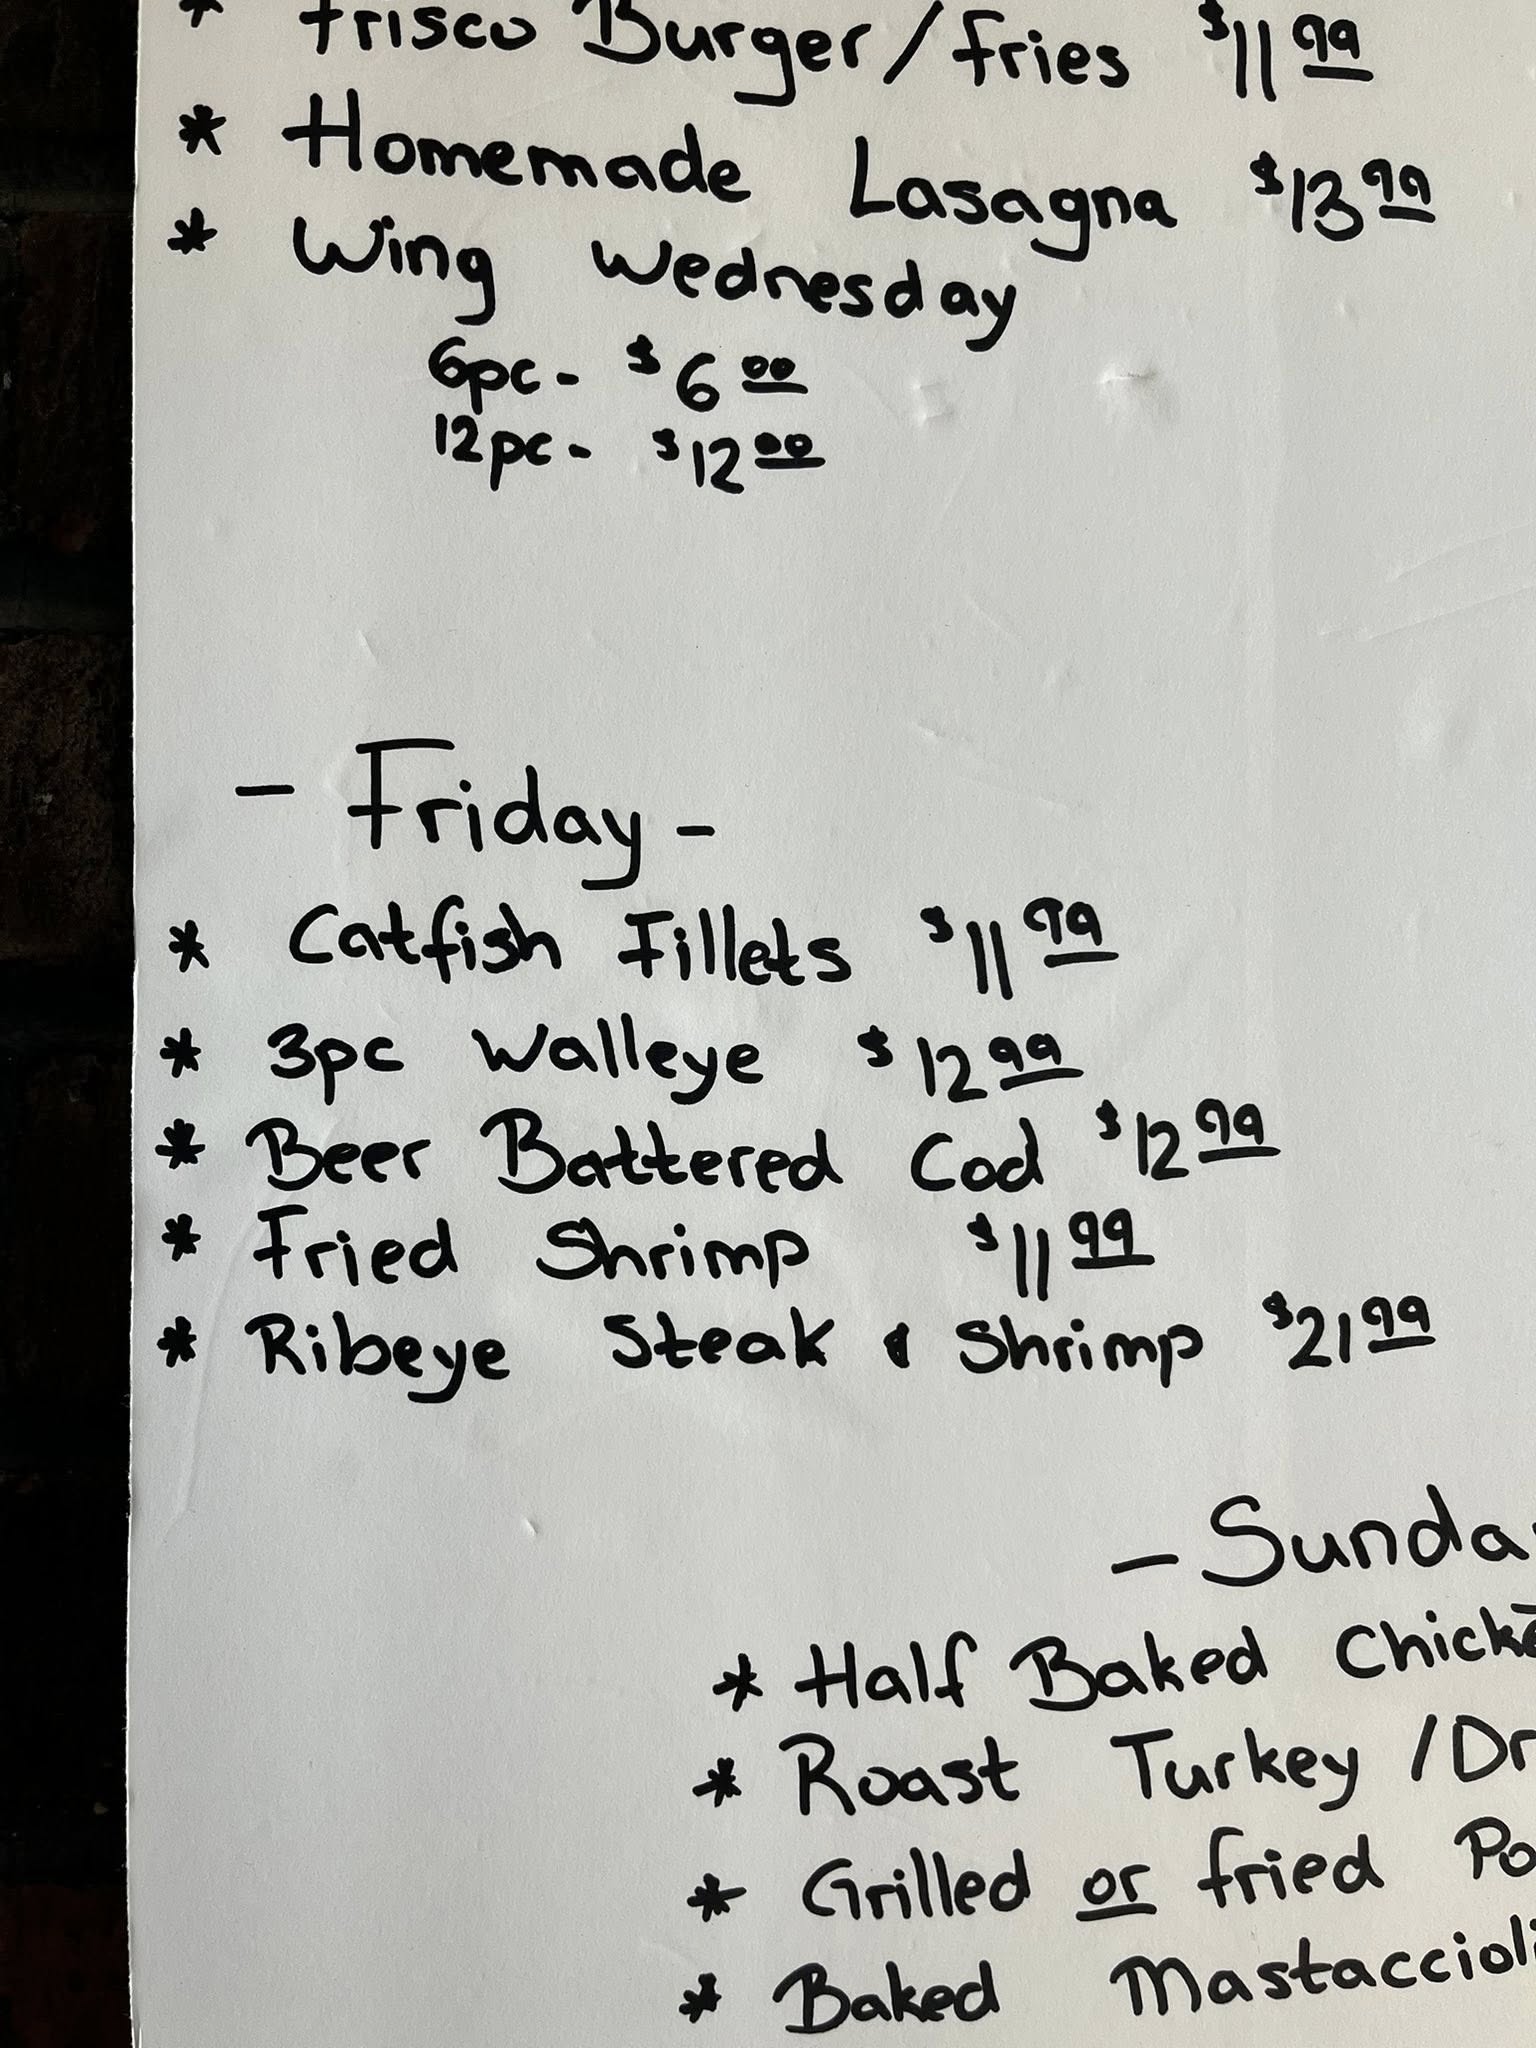 * Frisco Burger/fries $11.99
* Homemade Lasagna $13.99
* Wing Wednesday
6pc - $6.00
12pc - $12.00
- Friday -
* Catfish Fillets $11.99
* 3pc Walleye $12.99
* Beer Battered Cod $12.99
* Fried Shrimp $11.99
* Ribeye Steak & Shrimp $21.99
- Sunda
* Half Baked Chicke
* Roast Turkey /Dr
* Grilled or fried Po
* Baked Mastaccioli